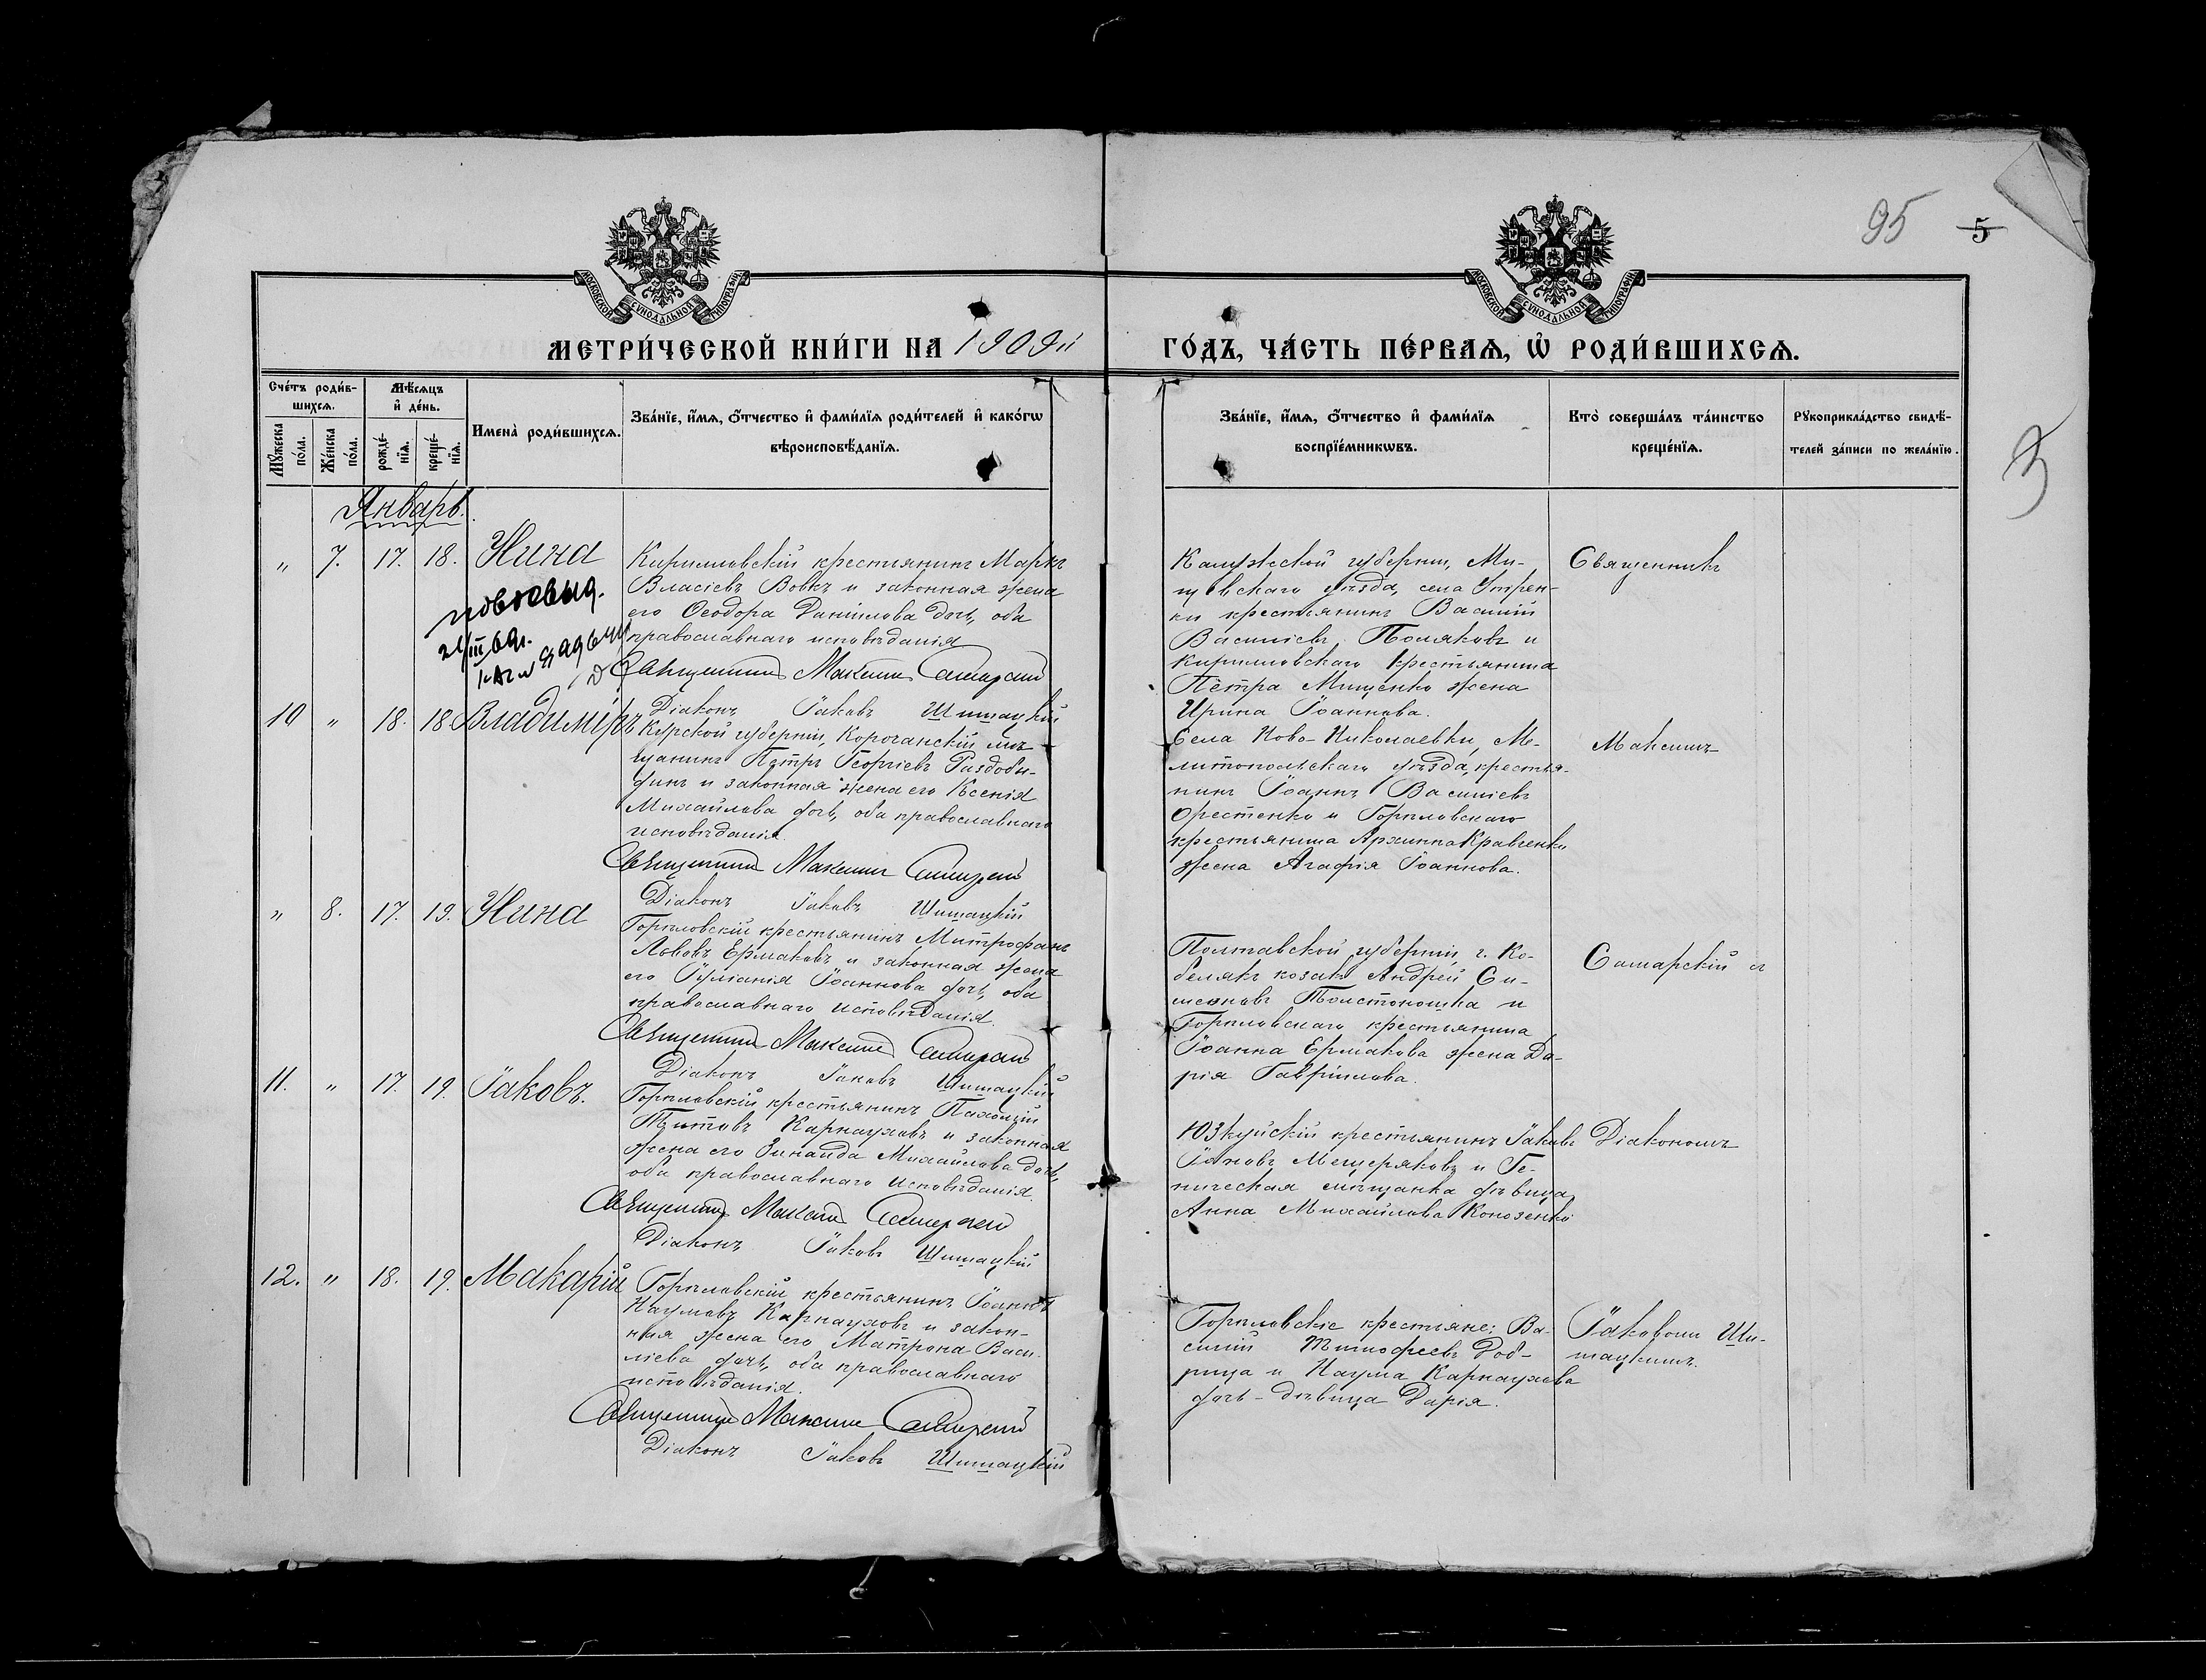 95 5
МОСКОВСКОЙ СѴНОДАЛЬНОЙ ТИПОГРАФИИ
МОСКОВСКОЙ СѴНОДАЛЬНОЙ ТИПОГРАФИИ
МЕТРИ́ЧЕСКОЙ КНИ́ГИ НА 1909й ГО́ДЪ, ЧА́СТЬ ПЕ́РВАѦ, Ѡ РОДИ́ВШИХСѦ.
Сче́тъ роди́в-
шихсѧ.
Мꙋ́жеска по́ла.
Же́нска по́ла.
Мѣ́сѧцъ
и҆ де́нь.
рожде́-
нїѧ.
креще́-
нїѧ.
Имена̀ роди́вшихсѧ.
Зва́нїе, и҆́мѧ, ѻ҆́тчество и҆ фами́лїѧ роди́телей и҆ како́гѡ
вѣроисповѣ́данїѧ.
Зва́нїе, и҆́мѧ, ѻ҆́тчество и҆ фами́лїѧ
воспрїе́мникѡвъ.
Кто̀ соверша́лъ та́инство
креще́нїѧ.
Рꙋкоприкла́дство свидѣ́-
телей за́писи по жела́нїю.
3
Январь.
" 7. 17. 18. Нина
повт. выд.
21/III 69г.
Кирилловскій крестьянинъ Маркъ
Власіевъ Вовкъ и законная жена
его Ѳеодора Даніилова дочь, оба
православнаго исповѣданія
Священникъ Максимъ Самарскій
Діаконъ Іаковъ Шишацкій
Калужской губерніи, Ми-
щовскаго уѣзда, села Утреш-
ки крестьянинъ Василій
Василіевъ Поляковъ и
Кирилловскаго крестьянина
Петра Мищенко жена
Ирина Іоаннова.
Священникъ
10 " 18. 18. Владиміръ
Курской губерніи, Корочанскій мѣ-
щанинъ Петръ Георгіевъ Раздобу-
динъ и законная жена его Ксенія
Михайлова дочь, оба православнаго
исповѣданія.
Священникъ Максимъ Самарскій
Діаконъ Іаковъ Шишацкій
Села Ново-Николаевки, Ме-
литопольскаго уѣзда, крестья-
нинъ Іоаннъ Василіевъ
Орестенко и Горѣловскаго
крестьянина Архиппа Кравченко
жена Агафія Іоаннова.
Максимъ
" 8. 17. 19. Нина
Горѣловскій крестьянинъ Митрофанъ
Львовъ Ермаковъ и законная жена
его Іуліанія Іоаннова дочь, оба
православнаго исповѣданія.
Священникъ Максимъ Самарскій
Діаконъ Іаковъ Шишацкій
Полтавской губерніи, г. Ко-
белякъ козакъ Андрей Си-
меоновъ Толстоношка и
Горѣловскаго крестьянина
Іоанна Ермакова жена Да-
рія Гавріилова.
Самарскій съ
11. " 17. 19. Іаковъ.
Горѣловскій крестьянинъ Пахомій
Титовъ Карнауховъ и законная
жена его Зинаида Михайлова дочь,
оба православнаго исповѣданія.
Священникъ Максимъ Самарскій
Діаконъ Іаковъ Шишацкій
Юзкуйскій крестьянинъ Іаковъ
Іоановъ Мещеряковъ и Ге-
ническая мѣщанка дѣвица
Анна Михайлова Конозенко
Діакономъ
12. " 18. 19. Макарій
Горѣловскій крестьянинъ Іоаннъ
Наумовъ Карнауховъ и закон-
ная жена его Матрона Васи-
ліева дочь, оба православнаго
исповѣданія.
Священникъ Максимъ Самарскій
Діаконъ Іаковъ Шишацкій
Горѣловскіе крестьяне: Ва-
силій Тимофеевъ Доб-
рица и Наума Карнаухова
дочь-дѣвица Дарія.
Іаковомъ Ши-
шацкимъ.